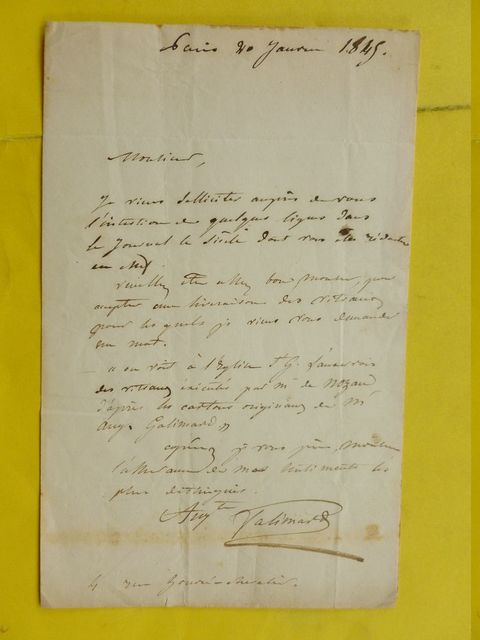 Paris 20 Janvier 1845.
Monsieur,
Je viens solliciter auprès de vous
l'insertion de quelques lignes dans
le Journal le Siècle dont vous êtes rédacteur
en chef.
veuillez être assez bon Monsieur, pour
accepter une livraison des vitraux
pour lesquels je viens vous demander
un mot.
" on voit à l'Eglise St G. l'auxerrois
des vitraux éxécutés par Mr de Nozan
d'après les cartons originaux de Mr
Aug. Galimard "
je vous prie, Monsieur
l'assurance de mes sentiments les
plus distingués.
Aug te Galimard
4 rue